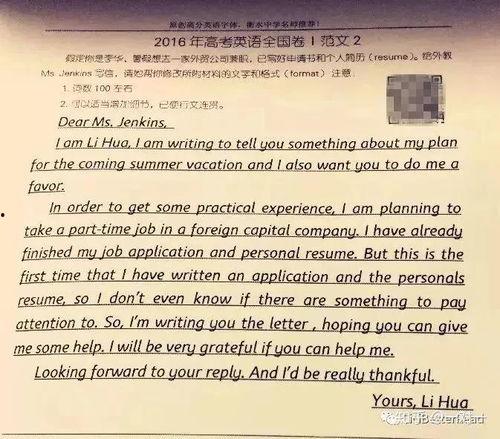 原创高分英语字体，衡水中学名师推荐！
2016年高考英语全国卷 I 范文2
假定你是李华，暑假想去一家外资公司兼职，已写好申请书和个人简历（resume）。给外教
Ms Jenkins 写信，请她帮你修改所附材料的文字和格式（format）注意：
1. 词数 100 左右
2. 可以适当增加细节，已使行文连贯。
Dear Ms. Jenkins,
I am Li Hua, I am writing to tell you something about my plan
for the coming summer vacation and I also want you to do me a
favor.
In order to get some practical experience, I am planning to
take a part-time job in a foreign capital company. I have already
finished my job application and personal resume. But this is the
first time that I have written an application and the personals
resume, so I don't even know if there are something to pay
attention to. So, I'm writing you the letter , hoping you can give
me some help. I will be very grateful if you can help me.
Looking forward to your reply. And I'd be really thankful.
Yours, Li Hua